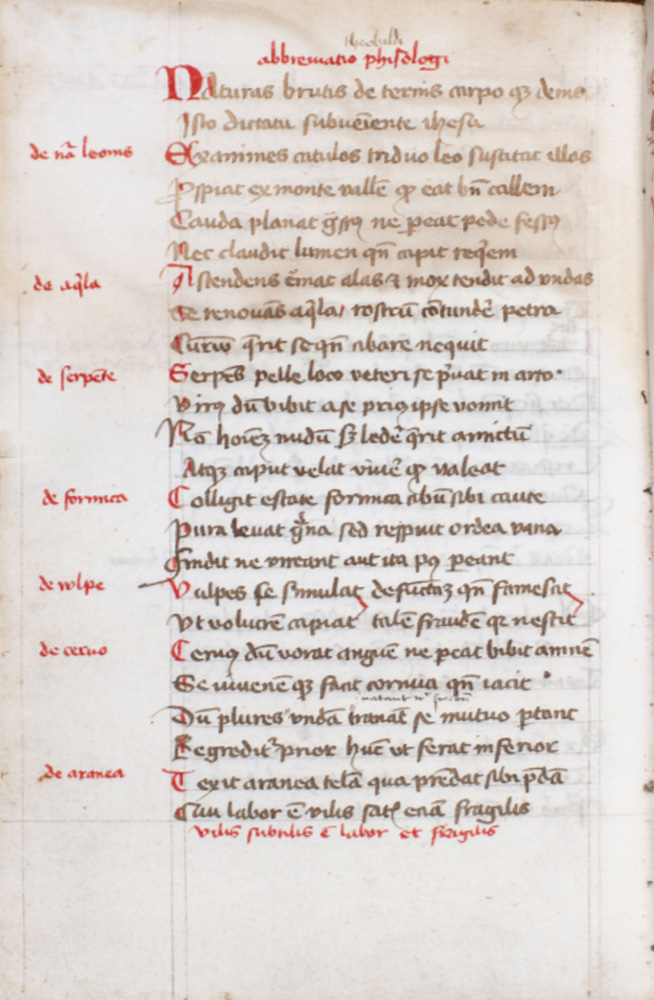 theobaldi
abbreuiatio phisologi
Naturas brutis de ternis carpo qȝ denis
Isto dictatu subueniente ihesu
de nā leonis
Exanimes catulos triduo leo suscitat illos
ex monte vallē eat bn̄ callem
Cauda planat ne ꝑeat pede fessꝰ
Nec claudit lumen qn̄ capit reqͥem
de aqͥla
Ascendens cͤmat alas ⁊ mox tendit ad vndas
Se renouās aqͥla rostrū cōtundēs petra
qͥrit se qn̄ cibare nequit
de serpēte
Serpēs pelle loco veteri se pͥuat in arto
Virꝰ dū bibit a se priꝰ ipse vomit
Nō hoīeȝ nudū sȝ ledeͤ qͥrit amictū
Atqȝ caput velat viueͤ valeat
de formica
Colligit estate formica cibū sibi caute
Pura leuat gͣna sed respuit ordea vana
Findit ne vireant aut ita pꝰ ꝑeant
de wlpe
Vulpes se simulat defūctaȝ qn̄ famescat
Vt volucrē capiat talē fraudē nescit
de ceruo
Ceruꝰ dū vorat anguē ne ꝑeat bibit amnē
Se iuuenē qȝ facit cornua qn̄ iacit
Dū plures vndā tranāt se mutuo ꝑtant
Regreditͬ prior hūc vt ferat inferior
de aranea
Texit aranea telā qua predat sibi pͤdā
Cuiꝰ labor ē vilis fragilis
vilis subtilis ē labor et fragilis